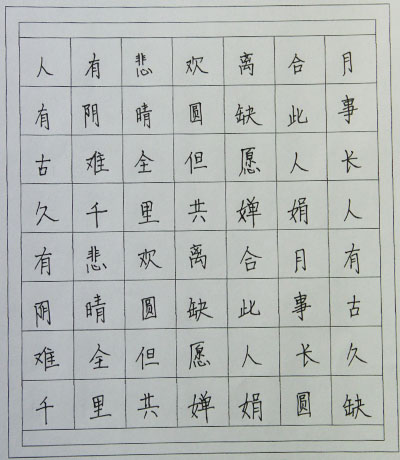 人有悲欢离合月
有阴晴圆缺此事
古难全但愿人长
久千里共婵娟人
有悲欢离合月有
阴晴圆缺此事古
难全但愿人长久
千里共婵娟圆缺